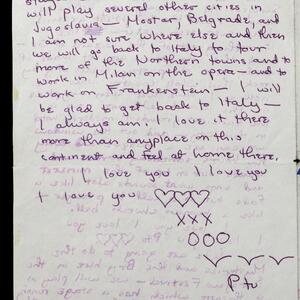 will play several other cities in
Jugoslavia — Mostar, Belgrade, and
I am not sure where else and then
we will go back to Italy to tour
more of the Northern towns and to
work in Milan on the opera — and to
work on Frankenstein — I will
be glad to get back to Italy —
I always am. I love it there
more than anyplace on this
continent and feel at home there.
I love you I love you
I love you
XXX
OOO